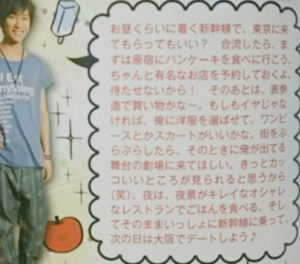 お昼くらいに着く新幹線で、東京に来
てもらってもいい? 合流したら、ま
ずは原宿にパンケーキを食べに行こう。
ちゃんと有名なお店を予約しておくよ、
待たせないから! そのあとは、表参
道で買い物かな〜。もしもイヤじゃな
ければ、俺に洋服を選ばせて。ワンピ
ースとかスカートがいいかな。街をぶ
らぶらしたら、そのときに俺が出てる
舞台の劇場に来てほしい。きっとカッ
コいいところが見られると思うから
(笑)。夜は、夜景がキレイなオシャレ
なレストランでごはんを食べる。そし
てそのままいっしょに新幹線に乗って、
次の日は大阪でデートしよう♪